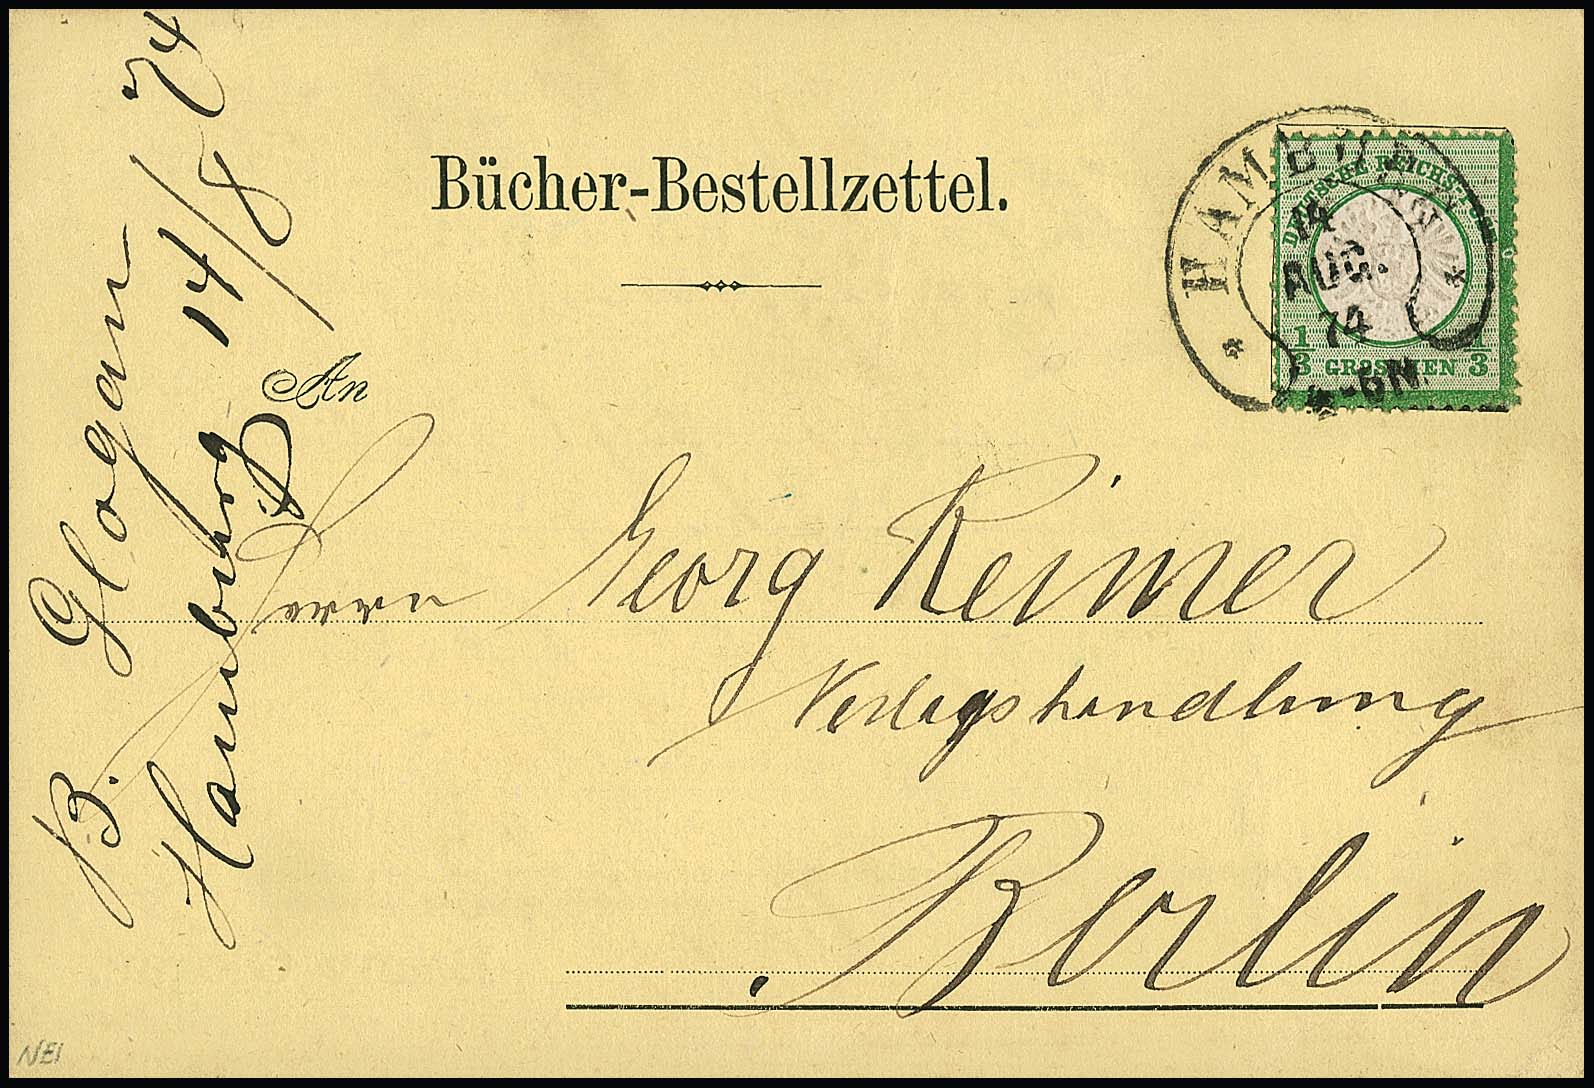 Bücher-Bestellzettel.
HAMBURG
14
AUG.
74
4-5N.
DEUTSCHE REICHSPOST
1/3 GROSCHEN 1/3
An
Herrn Georg Reimer
Verlagshandlung
Berlin
B. Glogau
Hamburg 14/8 74
NEI